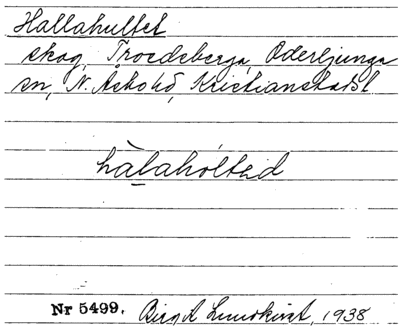 Hallahultet
skog, Troedsberga, Oderljunga
sn, N. Åsbo hd, Kristianstads l
hàlahòltəd
Nr 5499. Birgit Lundkvist, 1938